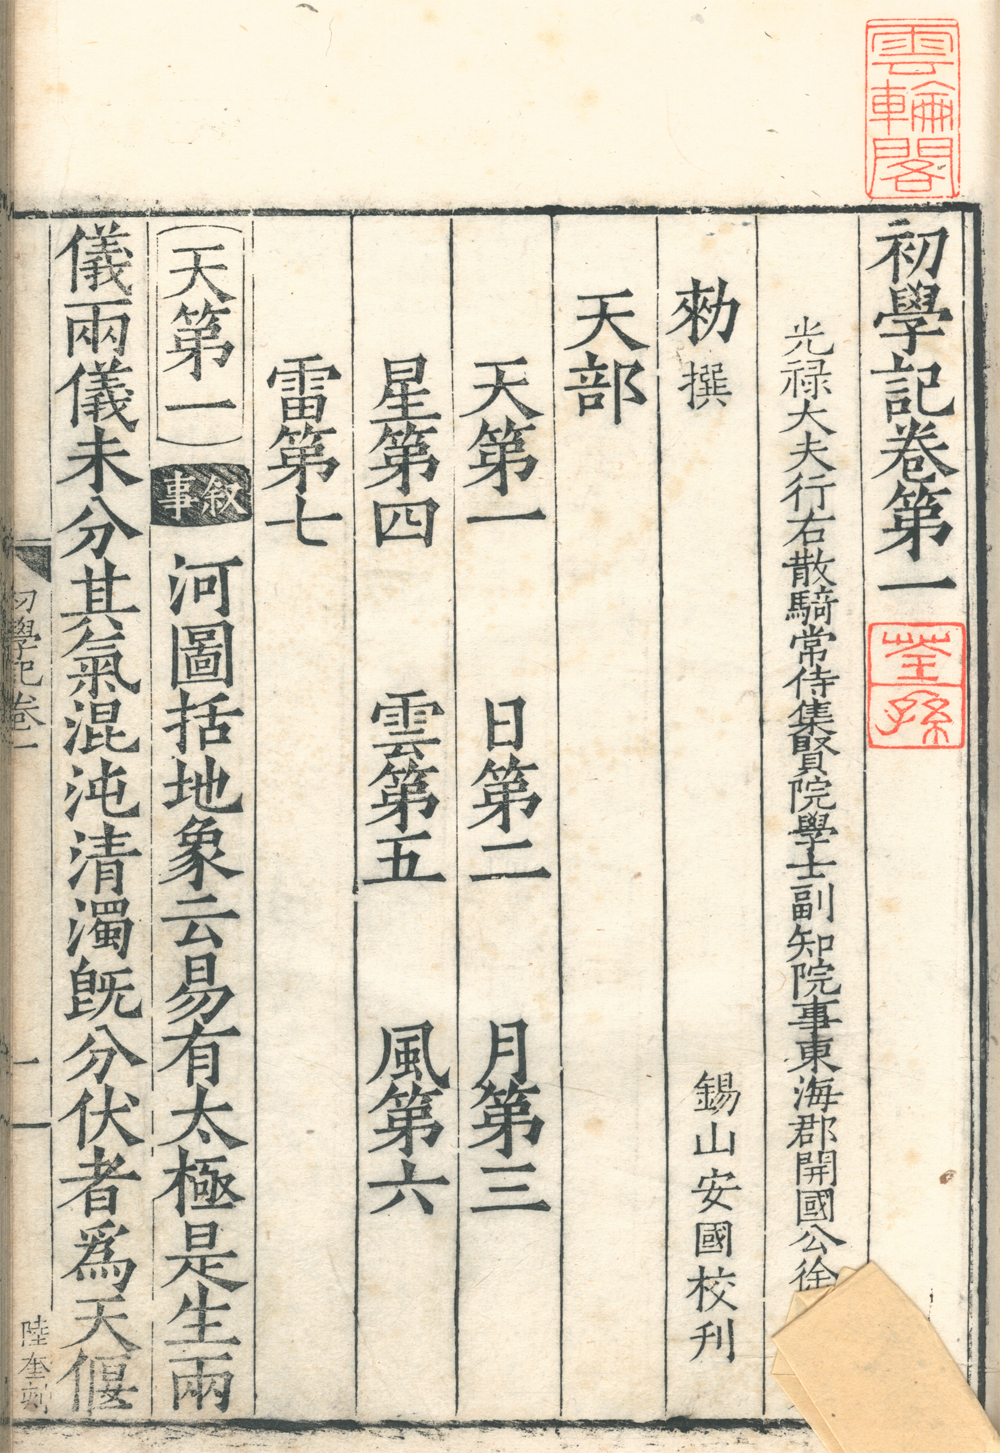 雲輪閣
初學記卷第一
荃孫
光祿大夫行右散騎常侍集賢院學士副知院事東海郡開國公徐
勑撰
錫山安國校刊
天部
天第一 日第二 月第三
星第四 雲第五 風第六
雷第七
天第一 叙事 河圖括地象云易有太極是生兩
儀兩儀未分其氣混沌清濁旣分伏者爲天偃
初學記卷一
一
陸奎刻